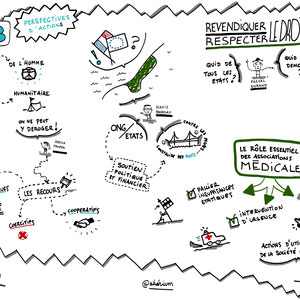 3
PERSPECTIVES
D'ACTIONS
DE L'HOMME
HUMANITAIRE
ON NE PEUT Y
DEROGER!
LES RECOURS
COOPERATIFS
COERCITIFS
ONG/
ETATS
SOUTIEN
POLITIQUE
ET
FINANCIER
CONSTRUIRE DES PONTS
REVENDIQUER
RESPECTER
LE DRO
QUID DE
TOUS LES
ETATS?
QUID
LE RÔLE ESSENTIEL
DES ASSOCIATIONS
MEDICALE
PALLIER
INSUFFISANCES
ETATIQUES
INTERVENTION
D'URGENCE
ACTIONS D'UTI
DE LA SOCIÉTÉ